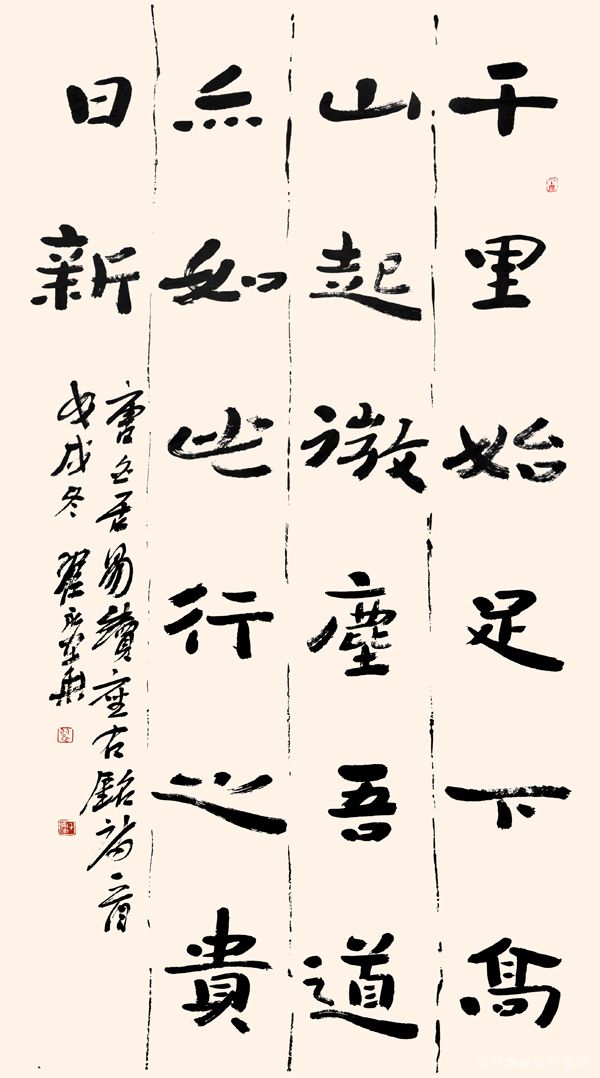 千里始足下高
山起微塵吾道
亦如此行之貴
日新
唐白居易續座右銘
戊戌冬 翟